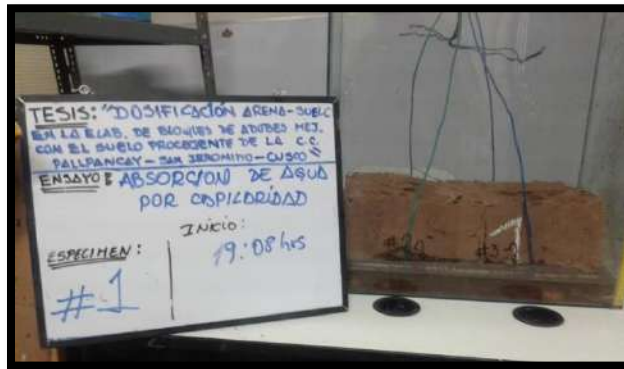 TESIS: "DOSIFICACIÓN ARENA-SUELO
EN LA ELAB. DE BLOQUES DE ADOBES MEJ.
CON EL SUELO PROCEDENTE DE LA C.C.
PALLPANCAY - SAN JERONIMO - CUSCO"
ENSAYO: ABSORCION DE AGUA
POR CAPILARIDAD
INICIO:
19:08 hrs
ESPECIMEN:
#1
1